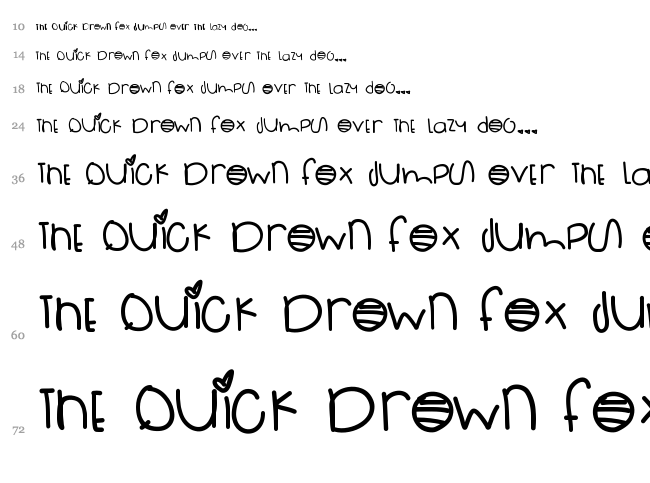 10 THE QUiCK BrowN fox jUmPS oVEr THE LaZY doG...
14 THE QUiCK BrowN fox jUmPS oVEr THE LaZY doG...
18 THE QUiCK BrowN fox jUmPS oVEr THE LaZY doG...
24 THE QUiCK BrowN fox jUmPS oVEr THE LaZY doG...
36 THE QUiCK BrowN fox jUmPS oVEr THE La
48 THE QUiCK BrowN fox jUmPS o
60 THE QUiCK BrowN fox jU
72 THE QUiCK BrowN fox